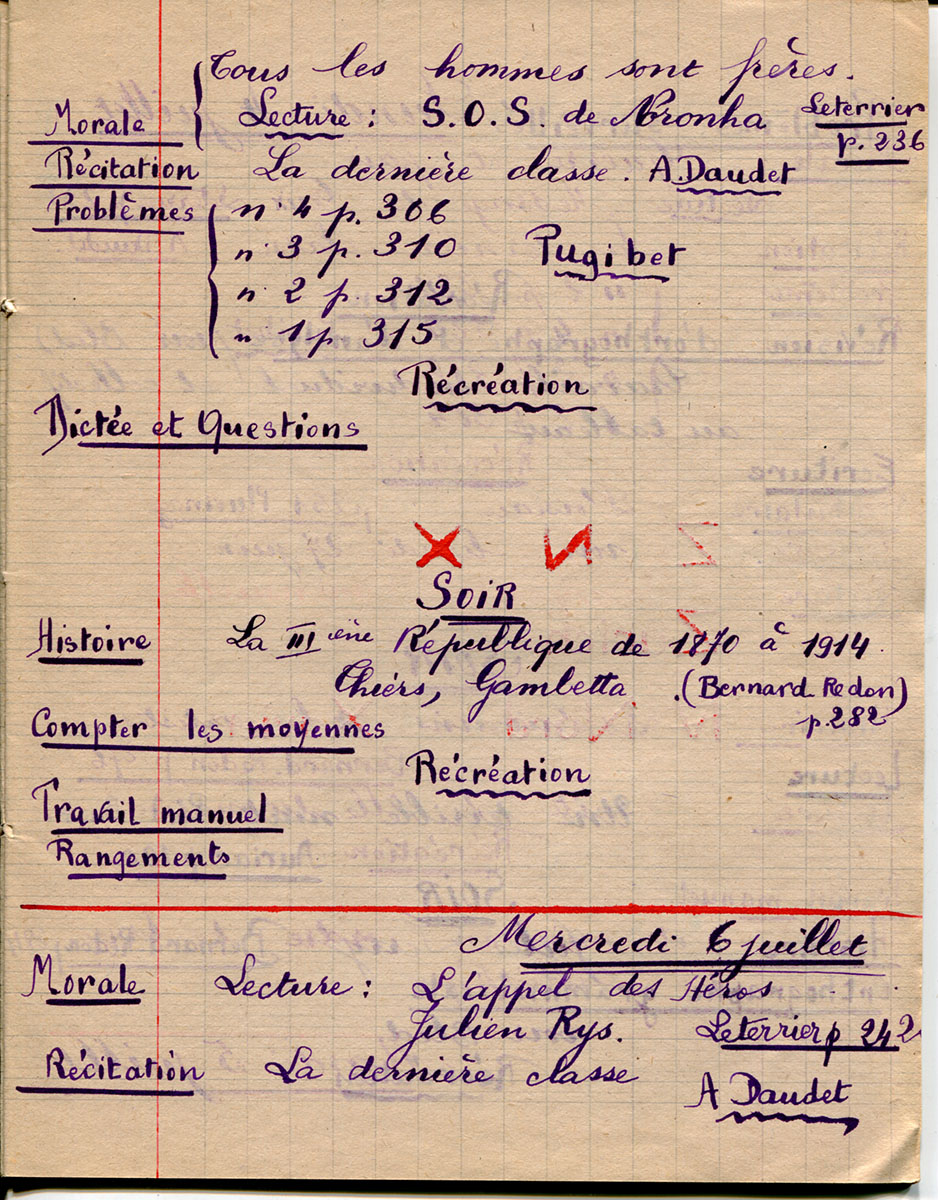 Tous les hommes sont frères.
Morale Lecture : S.O.S. de Noronha Leterrier
p. 236
Récitation La dernière classe. A. Daudet
Problèmes n° 4 p. 306
n° 3 p. 310 Pugibet
n° 2 p. 312
n° 1 p. 315
Récréation
Dictée et Questions
SOIR
Histoire La IIIième République de 1870 à 1914.
Thiers, Gambetta. (Bernard Redon)
p. 282
Compter les moyennes
Récréation
Travail manuel
Rangements
Mercredi 6 juillet
Morale Lecture : L'appel des Héros
Julien Rys. Leterrier p 242
Récitation La dernière classe
A Daudet